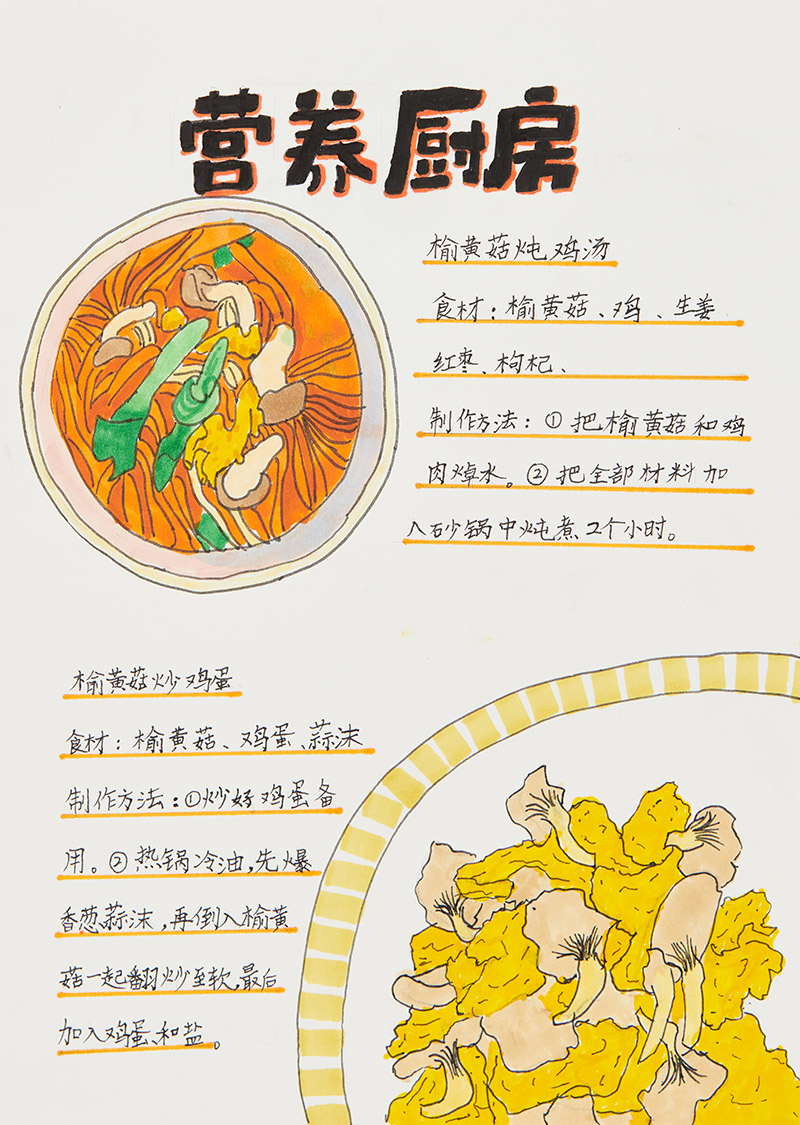 营养厨房
榆黄菇炖鸡汤
食材：榆黄菇、鸡、生姜
红枣、枸杞、
制作方法：①把榆黄菇和鸡
肉焯水。②把全部材料加
入砂锅中炖煮2个小时。
榆黄菇炒鸡蛋
食材：榆黄菇、鸡蛋、蒜沫
制作方法：①炒好鸡蛋备
用。②热锅冷油,先爆
香葱、蒜沫,再倒入榆黄
菇一起翻炒至软,最后
加入鸡蛋、和盐。